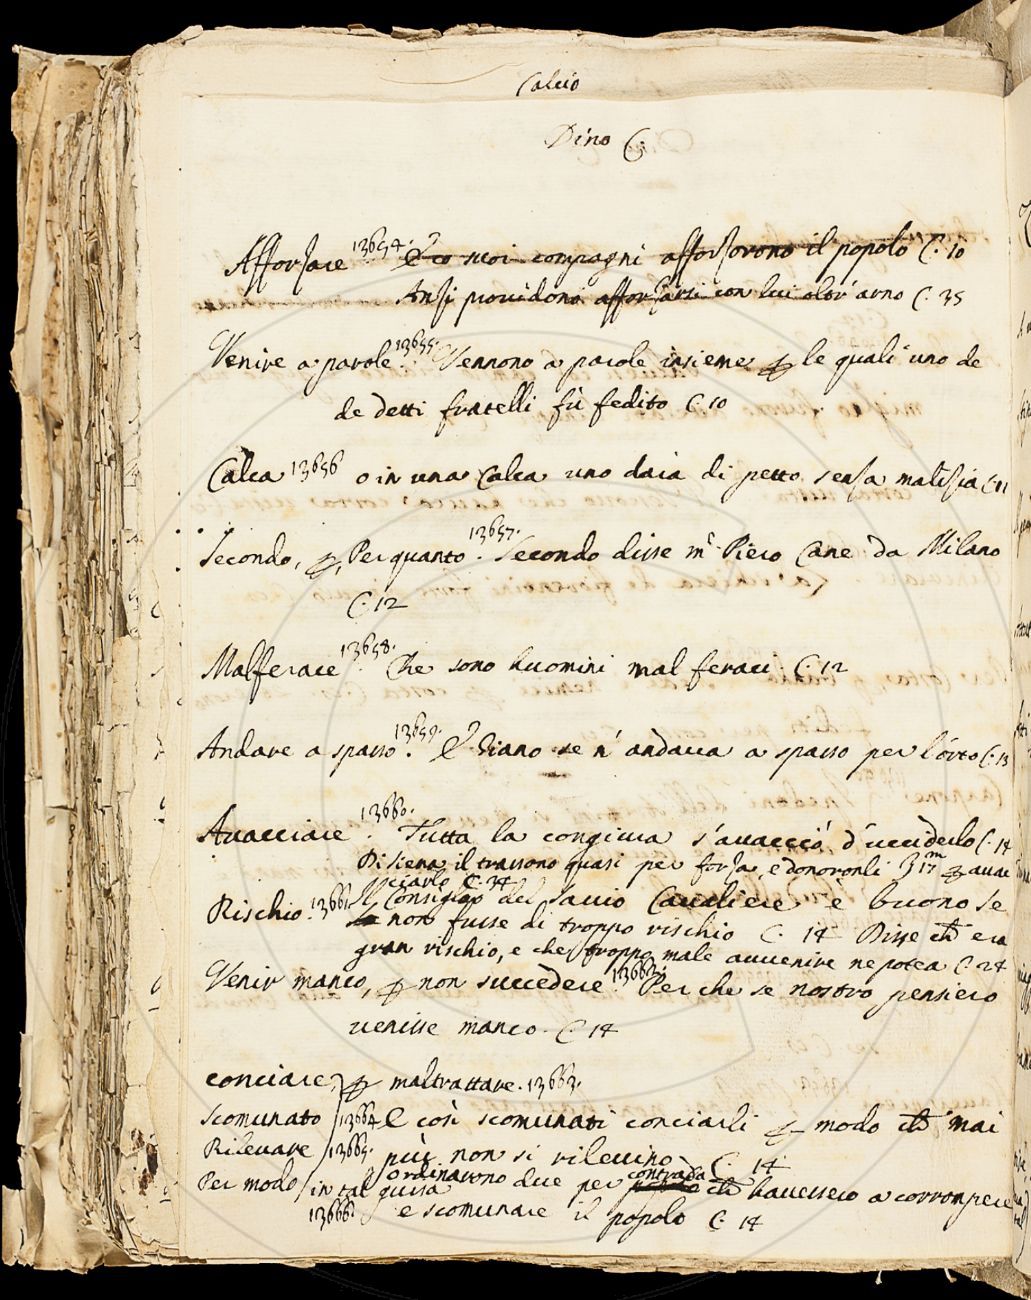 Calcio
Dino C.
Afforzare 13654. E co suoi compagni afforzorono il popolo C. 10
Anzi providono afforzarsi con lui oltr'arno C. 35
Venire a parole 13655. Vennono a parole insieme p le quali uno de
de detti fratelli fù fedito C. 10
Calca 13656 o in una Calca uno daia di petto senza malizia C. 11
Secondo, p, Per quanto 13657. Secondo disse mr Piero Cane da Milano
C. 12
Malferace 13658. Che sono huomini mal feraci. C. 12
Andare a spasso 13659. E Giano se n'andava a spasso per l'orto C. 13
Avacciare 13660. Tutta la congiura s'avacciò d'ucciderlo C. 14
Di siena il trassono quasi per forza, e donoronli 3 17m p avac
ciarlo C. 34
Rischio 13661. Il Consiglio del savio Cavaliere è buono se
non fusse di troppo rischio C. 14 Disse ch era
gran rischio, e che troppo male avvenire ne potea C. 24
Venir manco, p non succedere 13662. Per che se nostro pensiero
venisse manco. C. 14
conciare, p maltrattare. 13663.
Scomunato 13664 E così scomunati conciarli p modo ch mai
Rilevare 13665. più non si rilevino C. 14
Per modo in tal guisa ordinavono due per contrada ch havessero a corrompere
13666. e scomunare il popolo C. 14